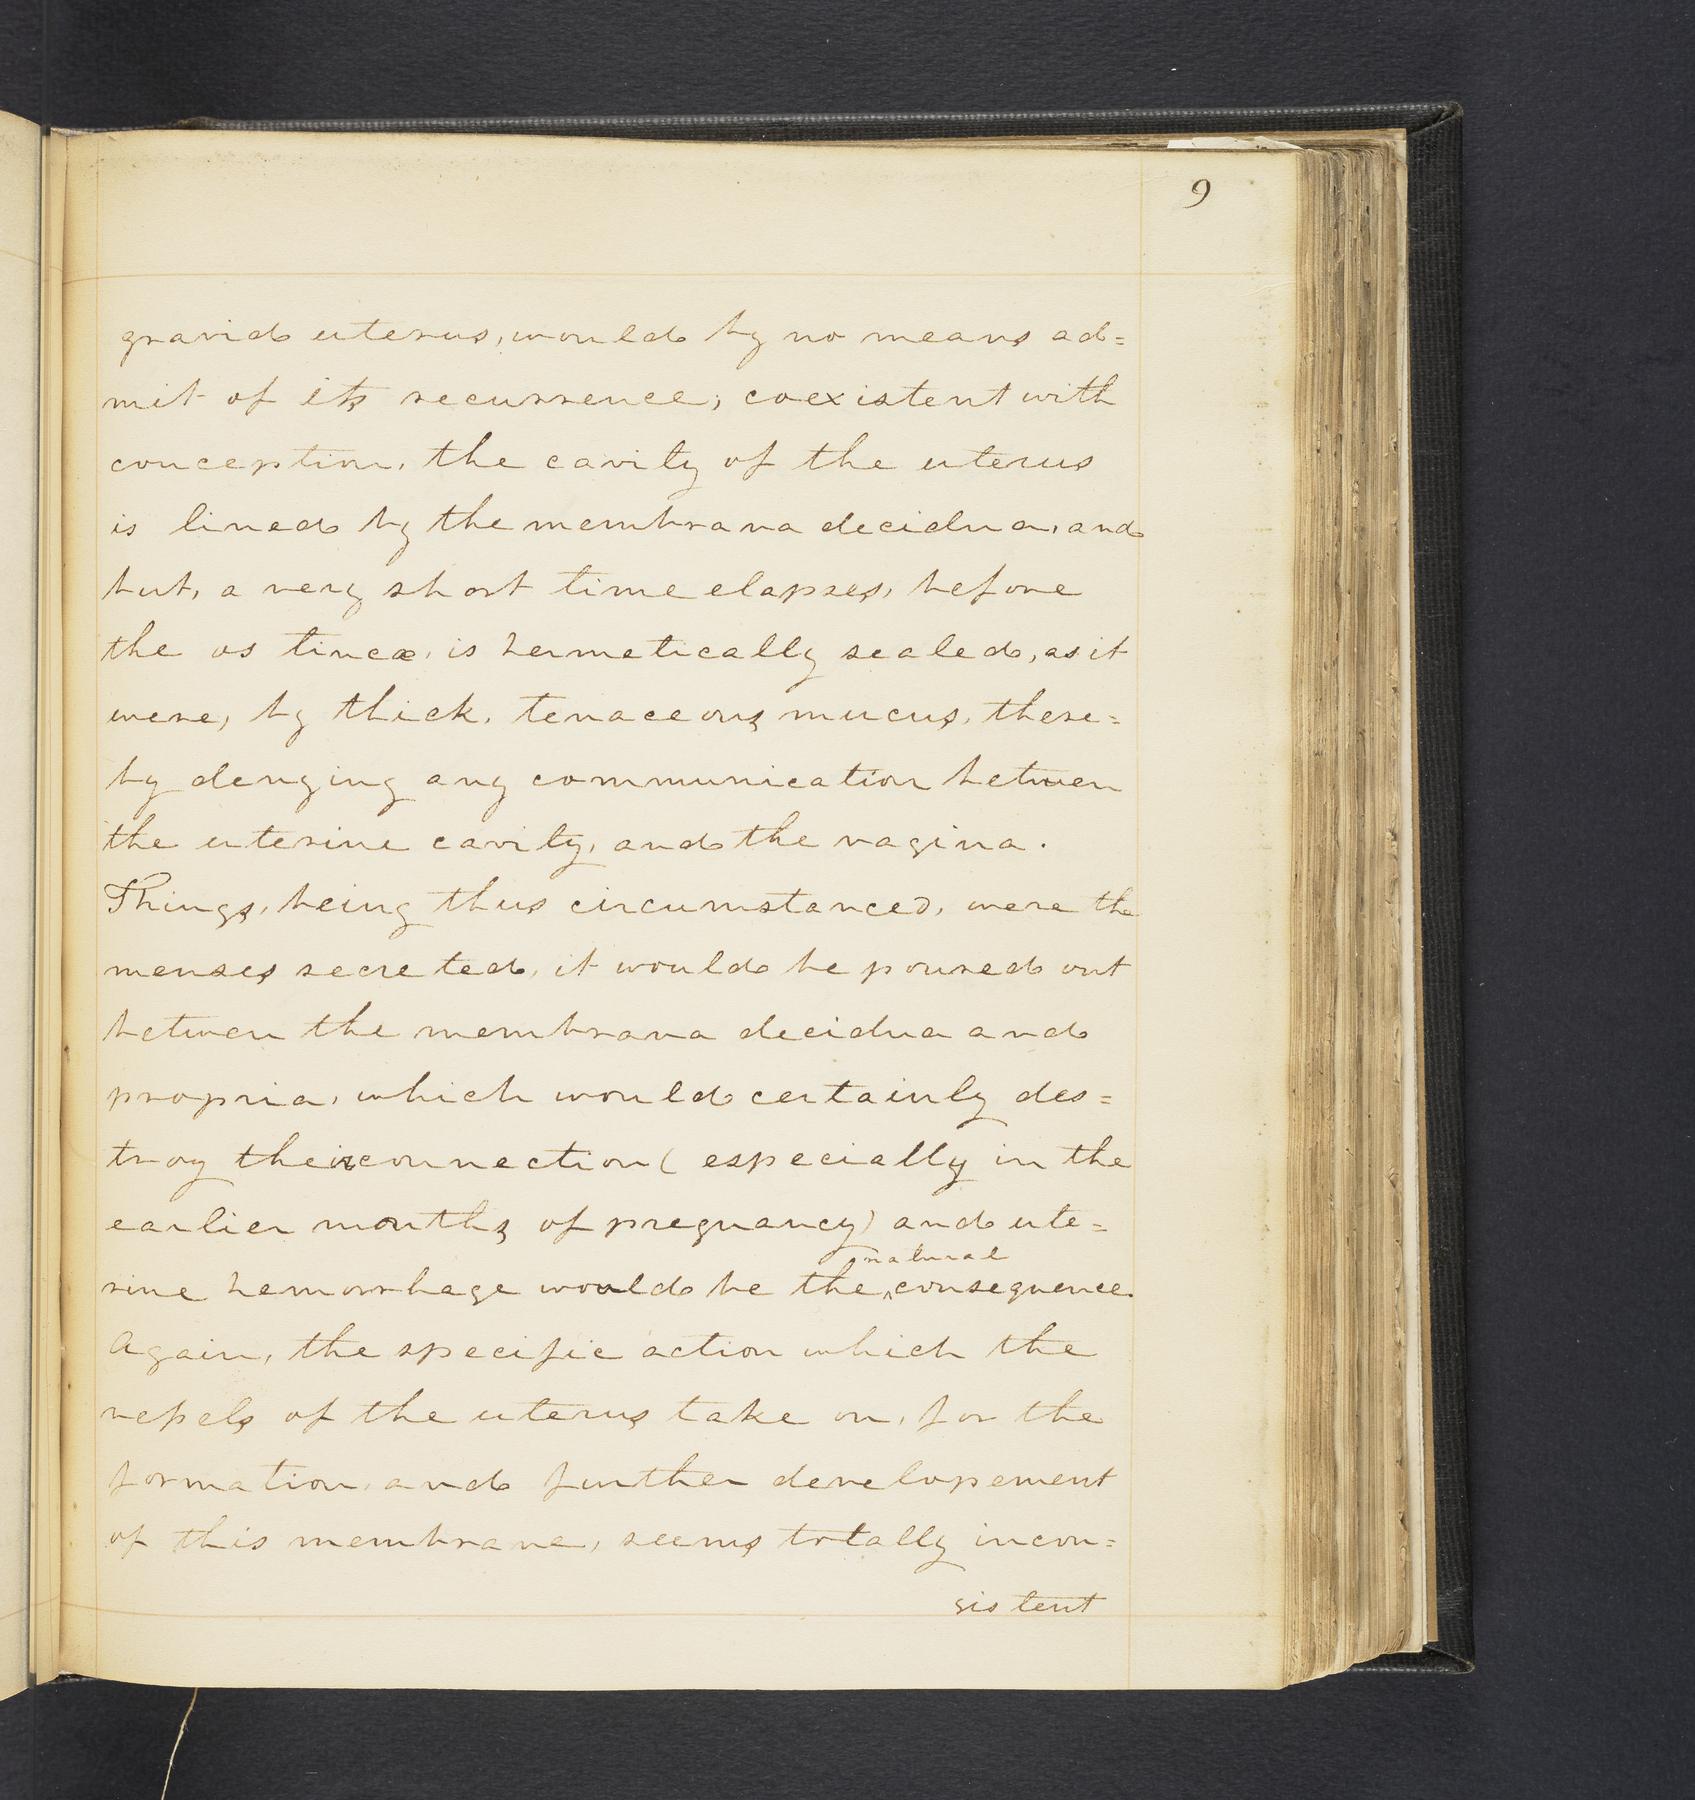 9
gravid uterus, would by no means ad=
mit of its recurrence; coexistent with
conception, the cavity of the uterus
is lined by the membrana decidua, and
but, a very short time elapses, before
the os tincæ, is hermetically sealed, as it
were, by thick, tenaceous mucus, there=
by denying any communication between
the uterine cavity, and the vagina.
Things, being thus circumstanced, were the
menses secreted, it would be poured out
between the membrana decidua and
propria, which would certainly des=
troy their connection (especially in the
earlier months of pregnancy) and ute=
natural
rine hemorrhage would be the ‸ consequence.
Again, the specific action which the
veſsels of the uterus take on, for the
formation, and further developement
of this membrane, seems totally incon=
sistent